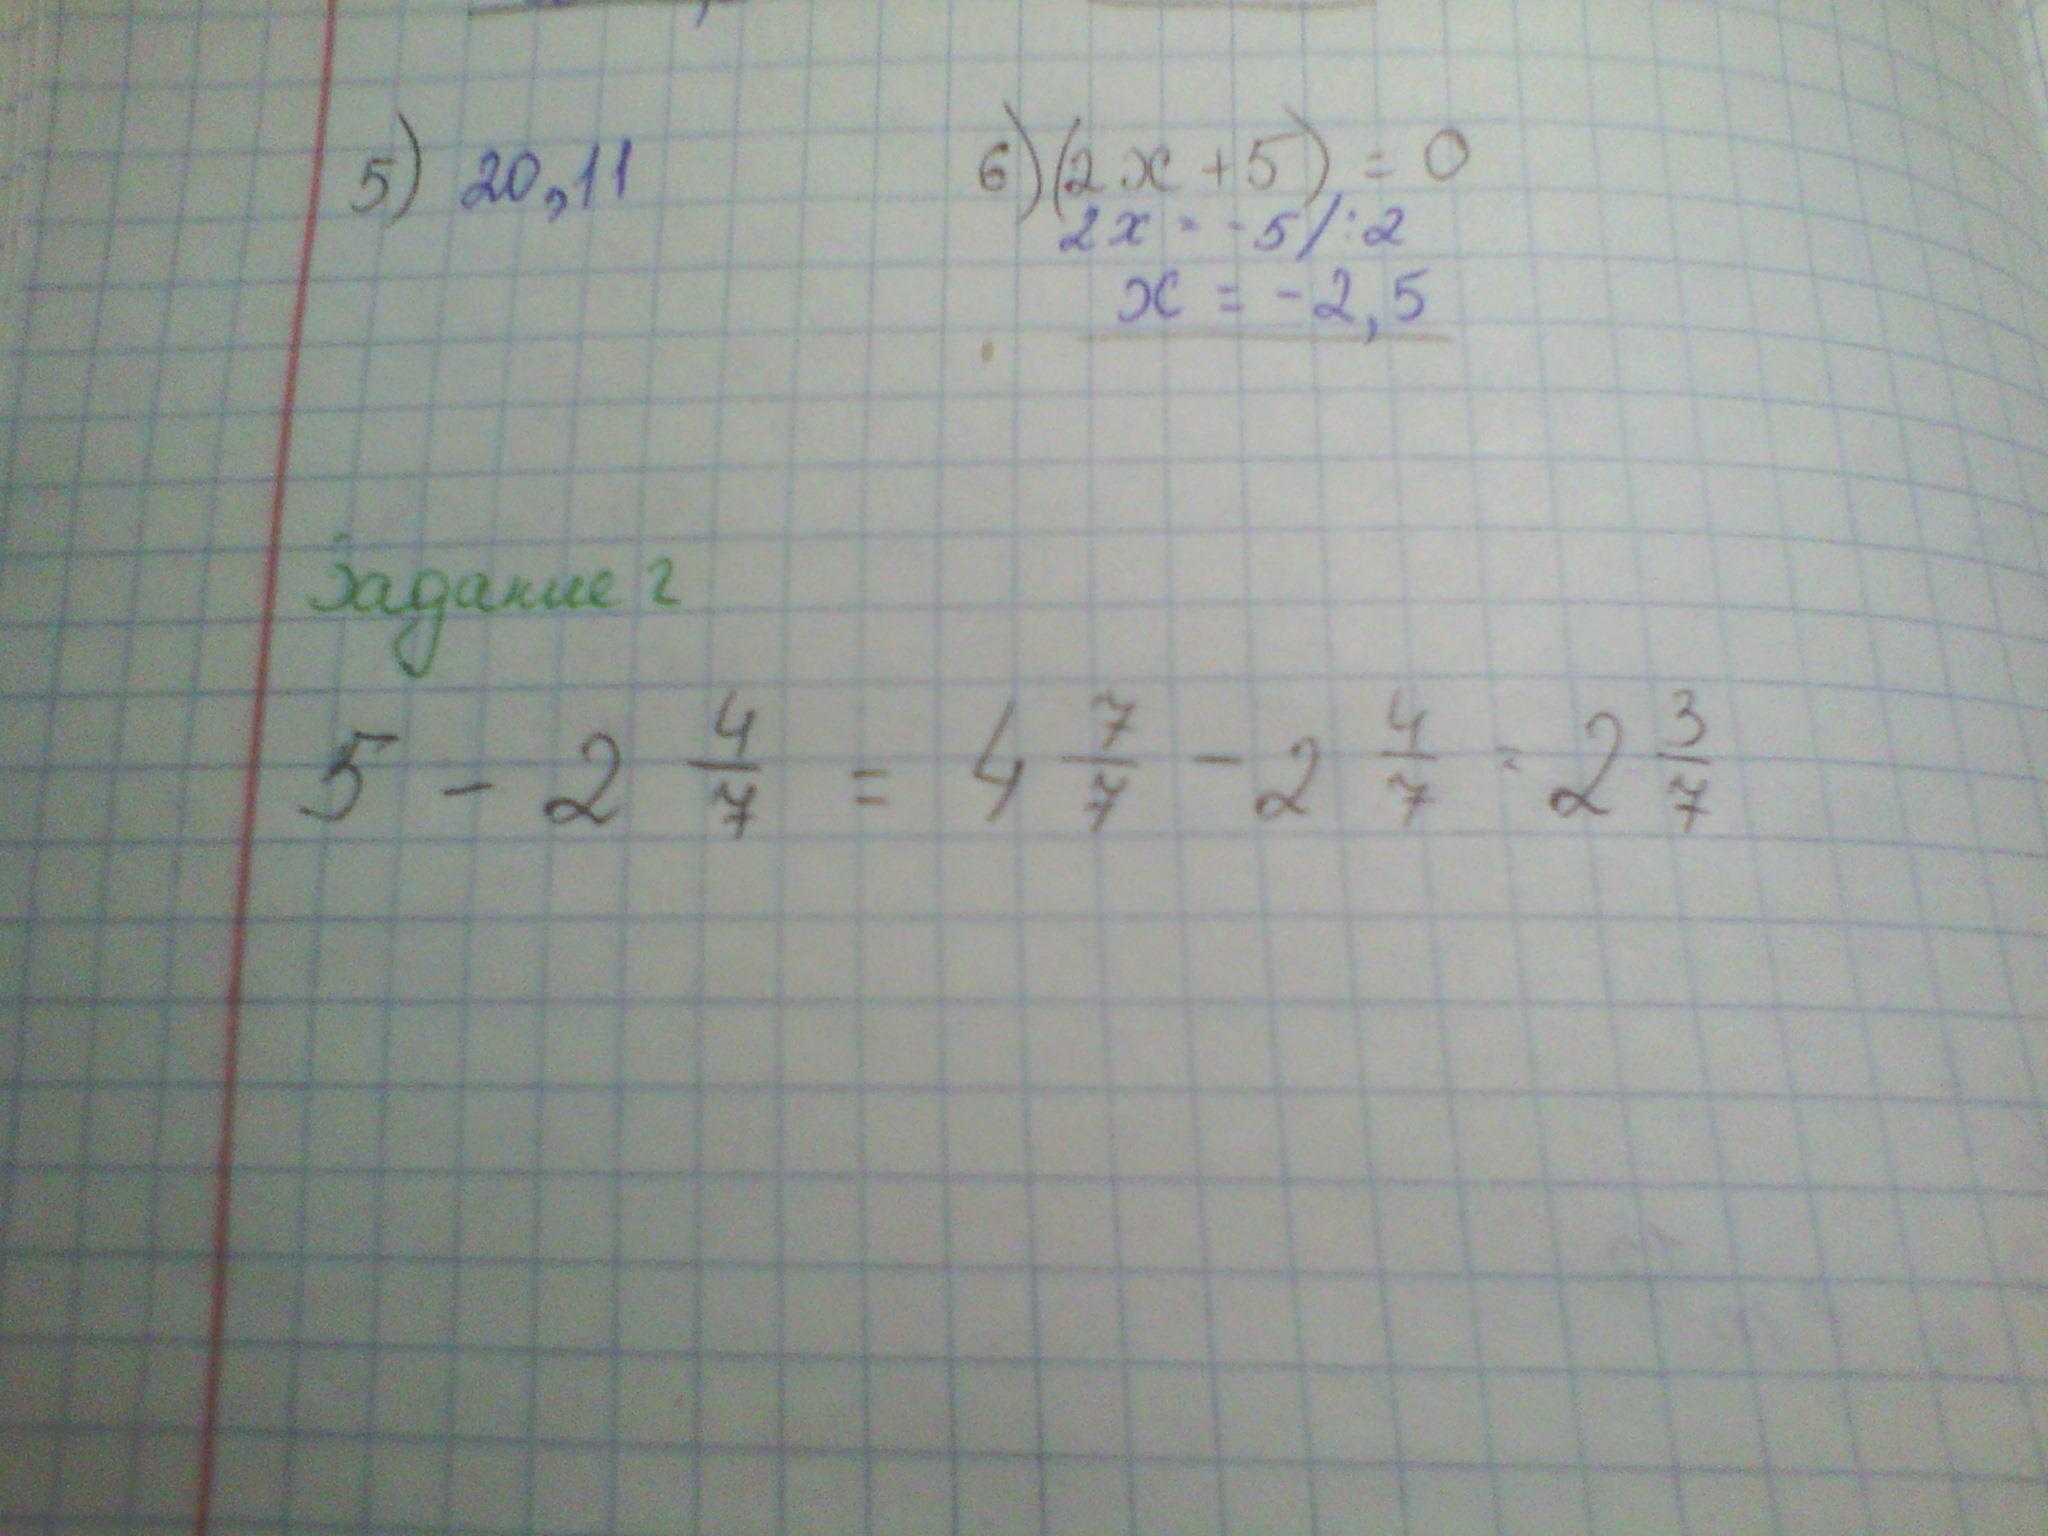 5) 20,11
6) (2x + 5) = 0
2x = -5 /:2
x = -2,5
Задание 2
5 - 2 4/7 = 4 7/7 - 2 4/7 = 2 3/7